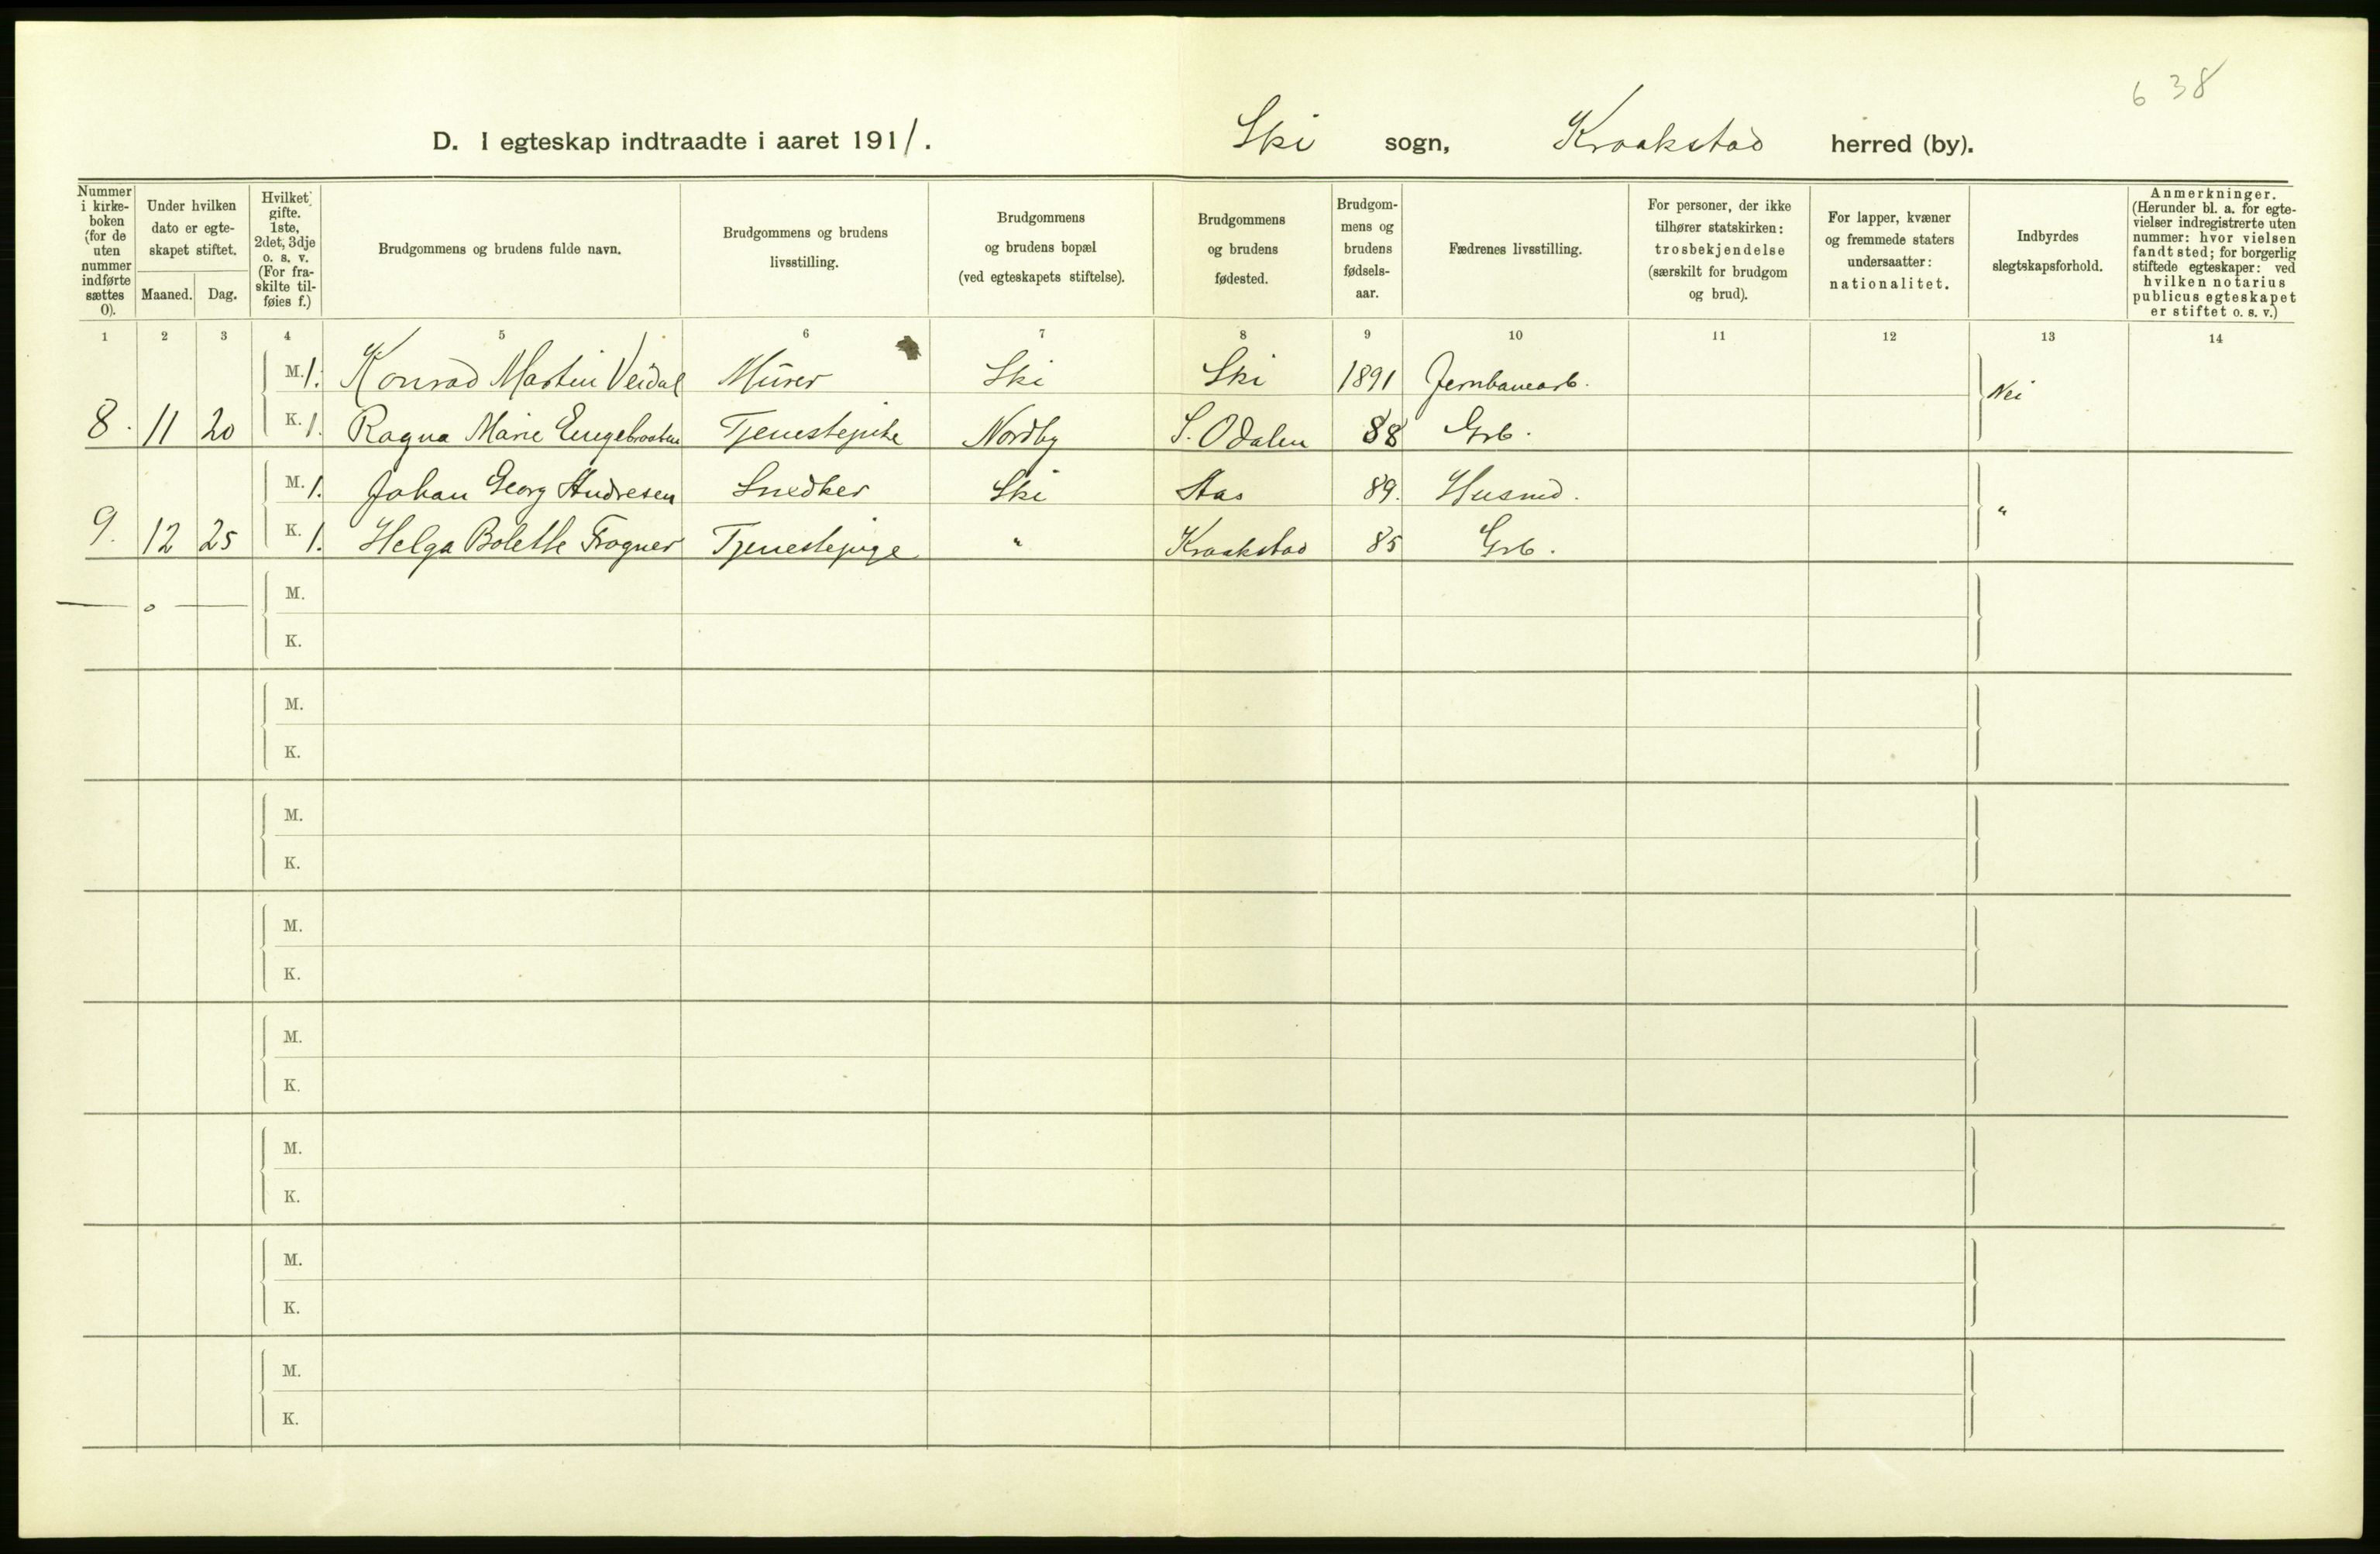 6 38
D. I egteskap indtraadte i aaret 1911. Ski sogn, Kraakstad herred (by).
Nummer i kirke-boken (for de uten nummer indførte sættes 0).
Under hvilken dato er egte-skapet stiftet.
Maaned. Dag.
Hvilket gifte. 1ste, 2det, 3dje o. s. v. (For fra-skilte til-føies f.)
Brudgommens og brudens fulde navn.
Brudgommens og brudens livsstilling.
Brudgommens og brudens bopæl (ved egteskapets stiftelse).
Brudgommens og brudens fødested.
Brudgom-mens og brudens fødsels-aar.
Fædrenes livsstilling.
For personer, der ikke tilhører statskirken: trosbekjendelse (særskilt for brudgom og brud).
For lapper, kvæner og fremmede staters undersaatter: nationalitet.
Indbyrdes slegtskapsforhold.
Anmerkninger. (Herunder bl. a. for egte-vielser indregistrerte uten nummer: hvor vielsen fandt sted; for borgerlig stiftede egteskaper: ved hvilken notarius publicus egteskapet er stiftet o. s. v.)
1 2 3 4 5 6 7 8 9 10 11 12 13 14
M. 1. Konrad Martin Veidal Murer Ski Ski 1891 Jernbanearb. Nei
8. 11 20 K. 1. Ragna Marie Tjenestepike Nordby S. Odalen 88 Grb.
M. 1. Johan Georg Andresen Snedker Ski Aas 89. Husmd. "
9. 12 25 K. 1. Helga Bolette Frogner Tjenestepige " Kraakstad 85 Grb.
— o — M.
K.
M.
K.
M.
K.
M.
K.
M.
K.
M.
K.
M.
K.
M.
K.